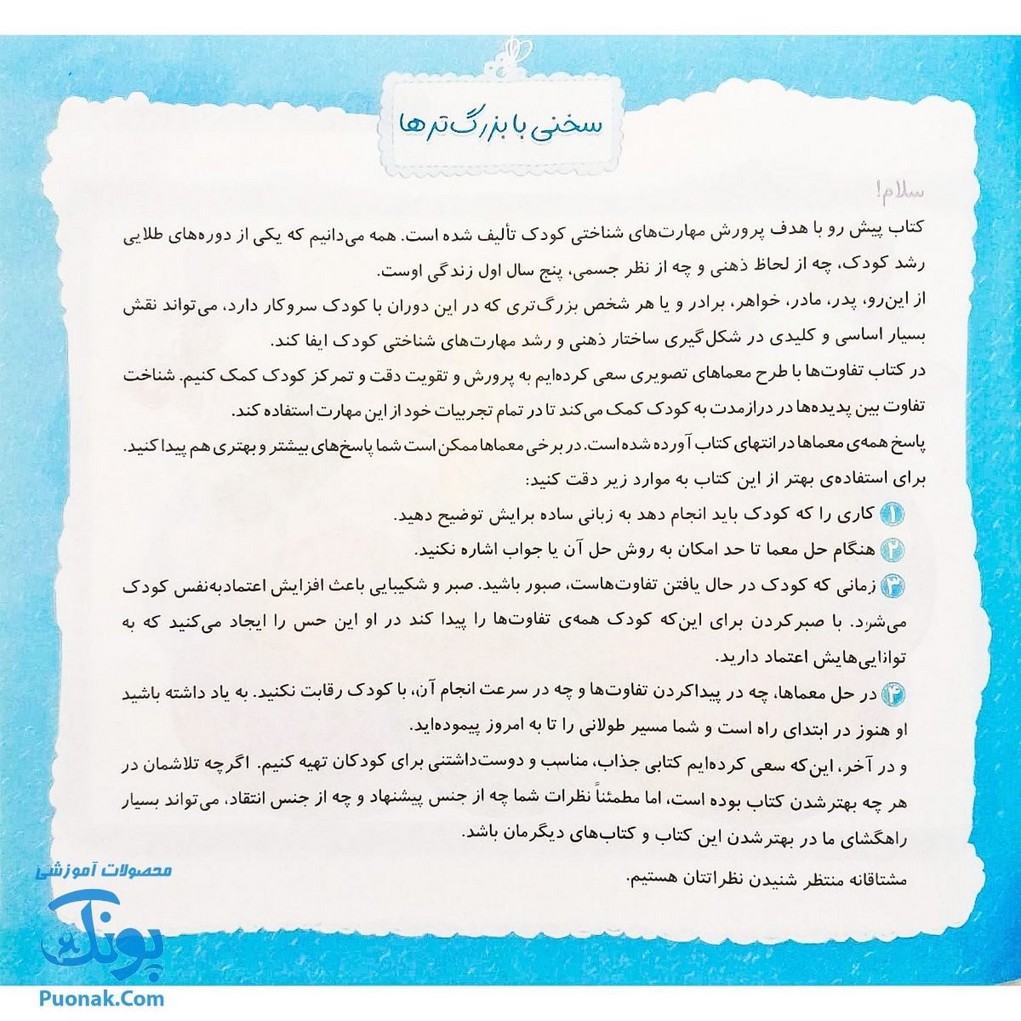 سخنی با بزرگ‌ترها
سلام!
کتاب پیش رو با هدف پرورش مهارت‌های شناختی کودک تألیف شده است. همه می‌دانیم که یکی از دوره‌های طلایی
رشد کودک، چه از لحاظ ذهنی و چه از نظر جسمی، پنج سال اول زندگی اوست.
از این‌رو، پدر، مادر، خواهر، برادر و یا هر شخص بزرگ‌تری که در این دوران با کودک سروکار دارد، می‌تواند نقش
بسیار اساسی و کلیدی در شکل‌گیری ساختار ذهنی و رشد مهارت‌های شناختی کودک ایفا کند.
در کتاب تفاوت‌ها با طرح معماهای تصویری سعی کرده‌ایم به پرورش و تقویت دقت و تمرکز کودک کمک کنیم. شناخت
تفاوت بین پدیده‌ها در درازمدت به کودک کمک می‌کند تا در تمام تجربیات خود از این مهارت استفاده کند.
پاسخ همه‌ی معماها در انتهای کتاب آورده شده است. در برخی معماها ممکن است شما پاسخ‌های بیشتر و بهتری هم پیدا کنید.
برای استفاده‌ی بهتر از این کتاب به موارد زیر دقت کنید:
۱ کاری را که کودک باید انجام دهد به زبانی ساده برایش توضیح دهید.
۲ هنگام حل معما تا حد امکان به روش حل آن یا جواب اشاره نکنید.
۳ زمانی که کودک در حال یافتن تفاوت‌هاست، صبور باشید. صبر و شکیبایی باعث افزایش اعتمادبه‌نفس کودک
می‌شود. با صبرکردن برای این‌که کودک همه‌ی تفاوت‌ها را پیدا کند در او این حس را ایجاد می‌کنید که به
توانایی‌هایش اعتماد دارید.
۴ در حل معماها، چه در پیداکردن تفاوت‌ها و چه در سرعت انجام آن، با کودک رقابت نکنید. به یاد داشته باشید
او هنوز در ابتدای راه است و شما مسیر طولانی را تا به امروز پیموده‌اید.
و در آخر، این‌که سعی کرده‌ایم کتابی جذاب، مناسب و دوست‌داشتنی برای کودکان تهیه کنیم. اگرچه تلاشمان در
هر چه بهترشدن کتاب بوده است، اما مطمئناً نظرات شما چه از جنس پیشنهاد و چه از جنس انتقاد، می‌تواند بسیار
راهگشای ما در بهترشدن این کتاب و کتاب‌های دیگرمان باشد.
مشتاقانه منتظر شنیدن نظراتتان هستیم.
محصولات آموزشی
پونک
Puonak.Com